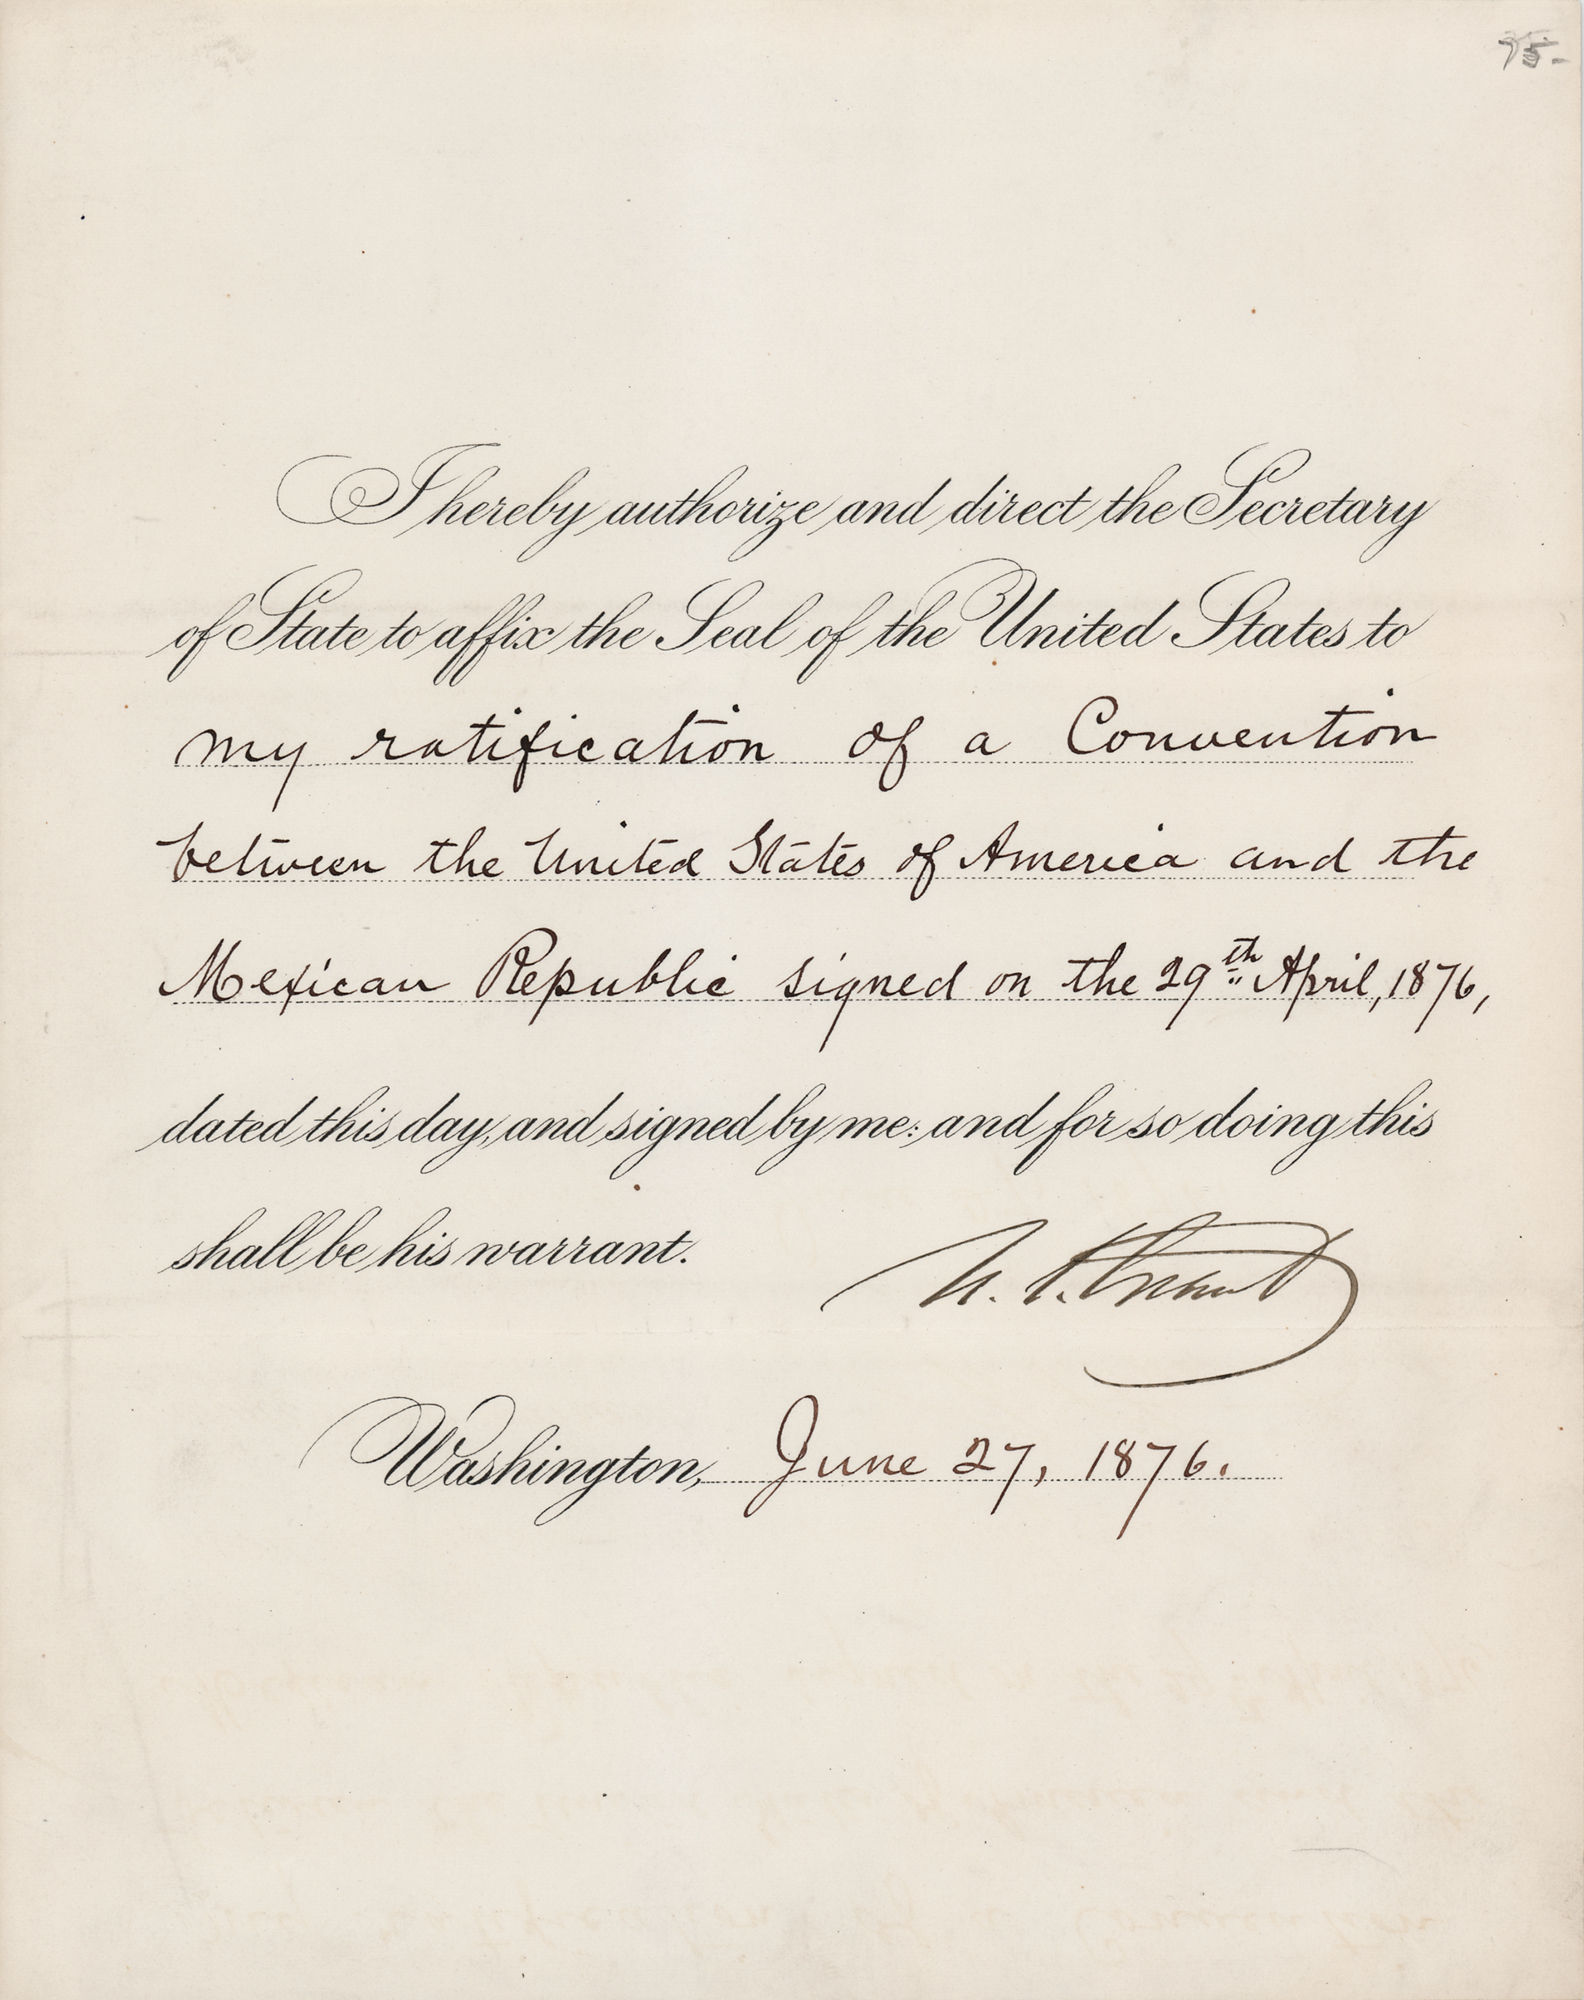 75-
I hereby authorize and direct the Secretary
of State to affix the Seal of the United States to
my ratification of a Convention
between the United States of America and the
Mexican Republic signed on the 29th April, 1876,
dated this day, and signed by me: and for so doing this
shall be his warrant.
U. S. Grant
Washington, June 27, 1876.